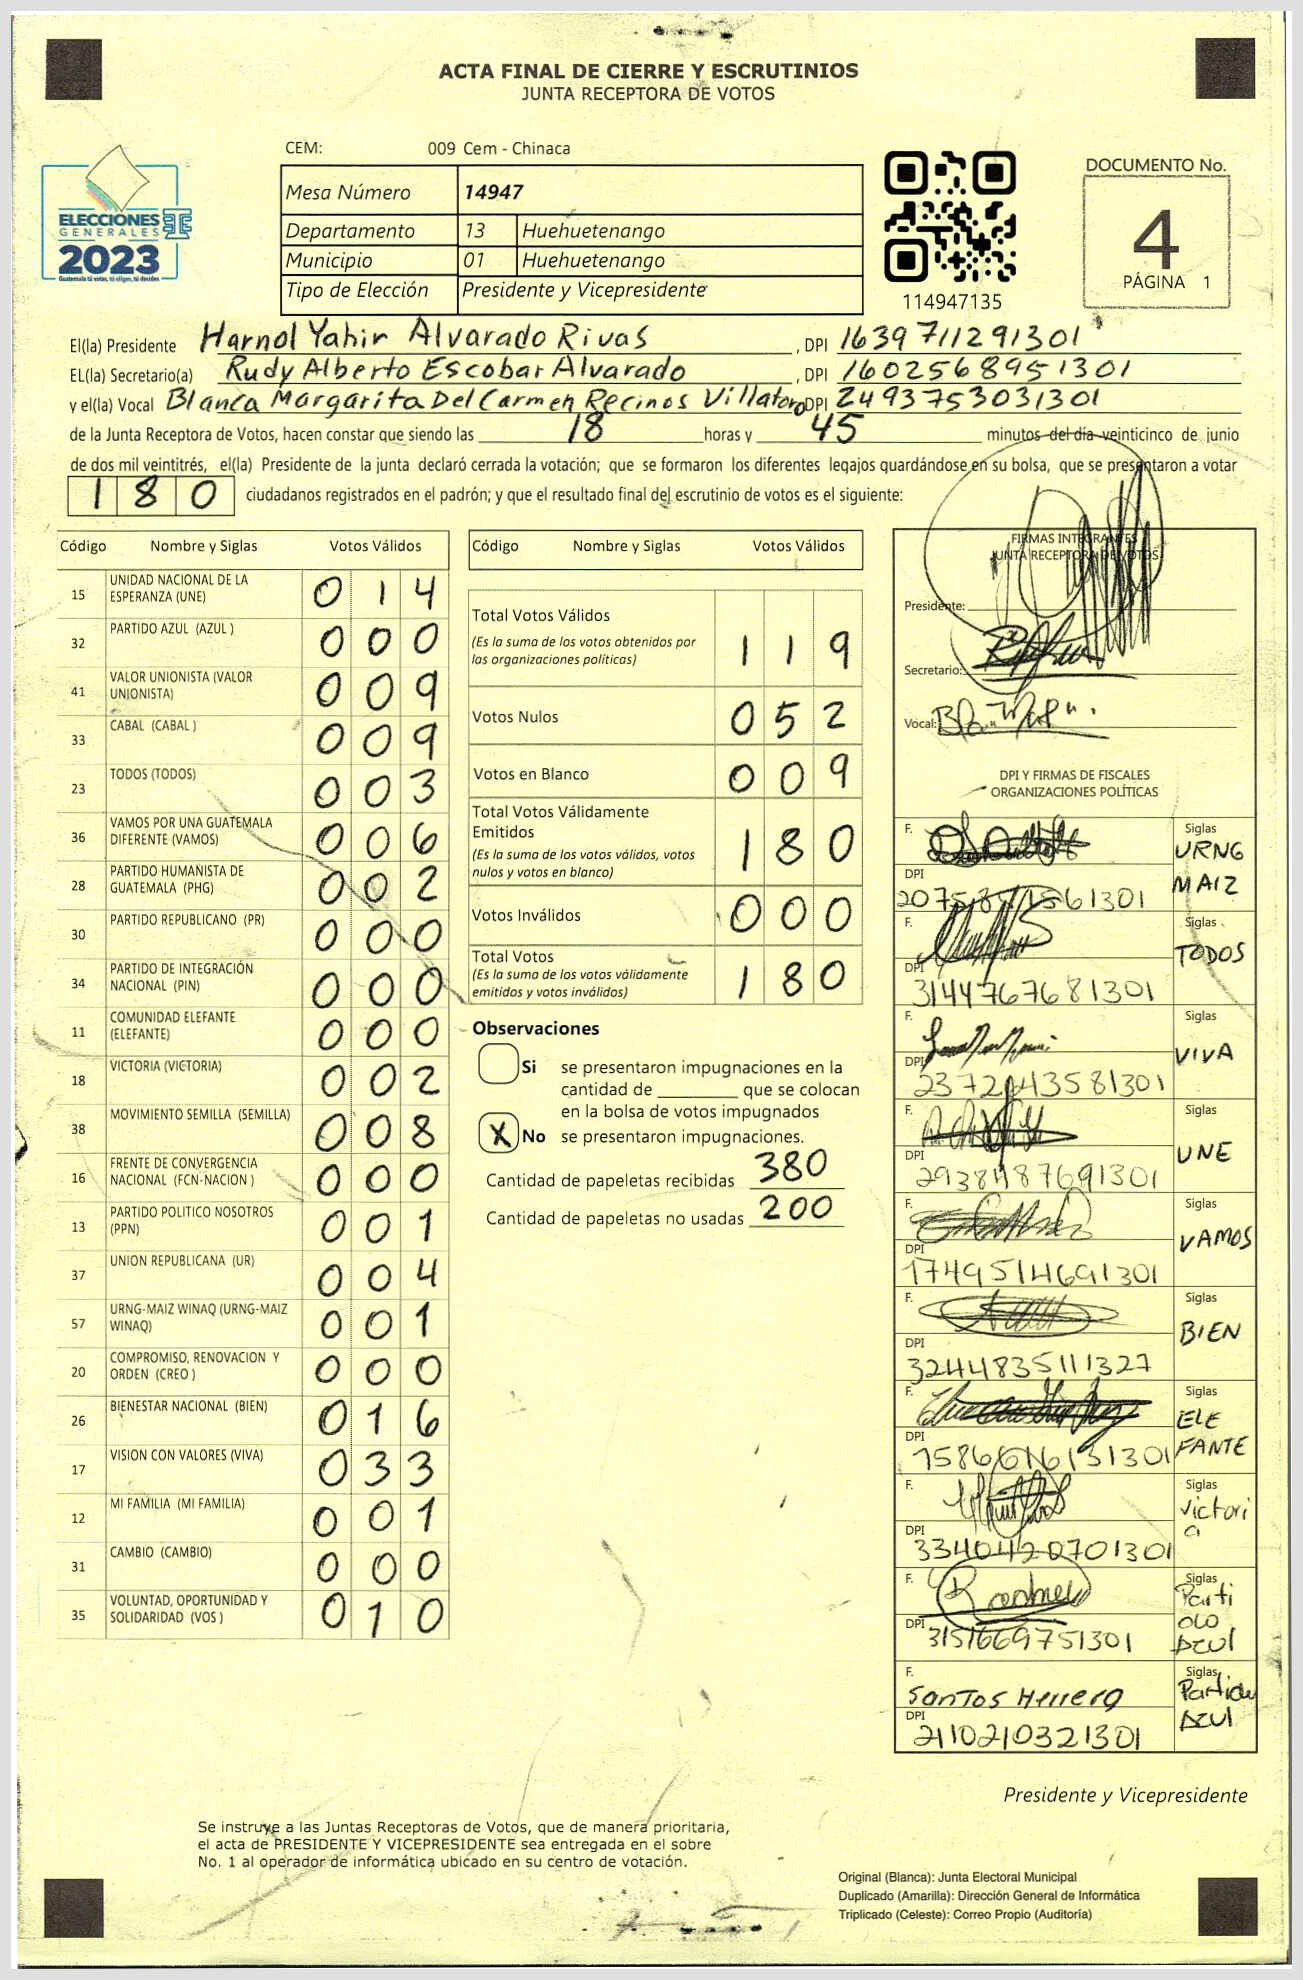 ACTA FINAL DE CIERRE Y ESCRUTINIOS
JUNTA RECEPTORA DE VOTOS
CEM: 009 Cem - Chinaca
ELECCIONES
GENERALES
2023
Guatemala tú votas, tú eliges, tú decides
Mesa Número 14947
Departamento 13 Huehuetenango
Municipio 01 Huehuetenango
Tipo de Elección Presidente y Vicepresidente
114947135
DOCUMENTO No.
4
PÁGINA 1
El(la) Presidente Harnol Yahir Alvarado Rivas , DPI 1639711291301
EL(la) Secretario(a) Rudy Alberto Escobar Alvarado , DPI 1602568951301
y el(la) Vocal Blanca Margarita Del Carmen Recinos Villatoro DPI 2493753031301
de la Junta Receptora de Votos, hacen constar que siendo las 18 horas y 45 minutos del día veinticinco de junio
de dos mil veintitrés, el(la) Presidente de la junta declaró cerrada la votación; que se formaron los diferentes legajos quardándose en su bolsa, que se presentaron a votar
180 ciudadanos registrados en el padrón; y que el resultado final del escrutinio de votos es el siguiente:
Código Nombre y Siglas Votos Válidos
15 UNIDAD NACIONAL DE LA ESPERANZA (UNE) 014
32 PARTIDO AZUL (AZUL ) 000
41 VALOR UNIONISTA (VALOR UNIONISTA) 009
33 CABAL (CABAL ) 009
23 TODOS (TODOS) 003
36 VAMOS POR UNA GUATEMALA DIFERENTE (VAMOS) 006
28 PARTIDO HUMANISTA DE GUATEMALA (PHG) 002
30 PARTIDO REPUBLICANO (PR) 000
34 PARTIDO DE INTEGRACIÓN NACIONAL (PIN) 000
11 COMUNIDAD ELEFANTE (ELEFANTE) 000
18 VICTORIA (VICTORIA) 002
38 MOVIMIENTO SEMILLA (SEMILLA) 008
16 FRENTE DE CONVERGENCIA NACIONAL (FCN-NACION ) 000
13 PARTIDO POLITICO NOSOTROS (PPN) 001
37 UNION REPUBLICANA (UR) 004
57 URNG-MAIZ WINAQ (URNG-MAIZ WINAQ) 001
20 COMPROMISO, RENOVACION Y ORDEN (CREO ) 000
26 BIENESTAR NACIONAL (BIEN) 016
17 VISION CON VALORES (VIVA) 033
12 MI FAMILIA (MI FAMILIA) 001
31 CAMBIO (CAMBIO) 000
35 VOLUNTAD, OPORTUNIDAD Y SOLIDARIDAD (VOS ) 010
Código Nombre y Siglas Votos Válidos
Total Votos Válidos
(Es la suma de los votos obtenidos por las organizaciones políticas) 119
Votos Nulos 052
Votos en Blanco 009
Total Votos Válidamente Emitidos
(Es la suma de los votos válidos, votos nulos y votos en blanco) 180
Votos Inválidos 000
Total Votos
(Es la suma de los votos válidamente emitidos y votos inválidos) 180
Observaciones
Si se presentaron impugnaciones en la
cantidad de ________ que se colocan
en la bolsa de votos impugnados
X No se presentaron impugnaciones.
Cantidad de papeletas recibidas 380
Cantidad de papeletas no usadas 200
FIRMAS INTEGRANTES
JUNTA RECEPTORA DE VOTOS
Presidente:
Secretario:
Vocal:
DPI Y FIRMAS DE FISCALES
ORGANIZACIONES POLÍTICAS
F. Siglas URNG MAIZ
DPI
F. Siglas TODOS
DPI 3144767681301
F. Siglas VIVA
DPI
F. Siglas UNE
DPI
F. Siglas VAMOS
DPI 1749514691301
F. Siglas BIEN
DPI 3244835111327
F. Siglas ELE FANTE
DPI
F. Siglas Victori a
DPI 3340420701301
F. Siglas Parti DLO AZUl
DPI 3151669751301
F. Santos Herrera Siglas Partido AZUl
DPI 2110210321301
Presidente y Vicepresidente
Se instruye a las Juntas Receptoras de Votos, que de manera prioritaria,
el acta de PRESIDENTE Y VICEPRESIDENTE sea entregada en el sobre
No. 1 al operador de informática ubicado en su centro de votación.
Original (Blanca): Junta Electoral Municipal
Duplicado (Amarilla): Dirección General de Informática
Triplicado (Celeste): Correo Propio (Auditoría)